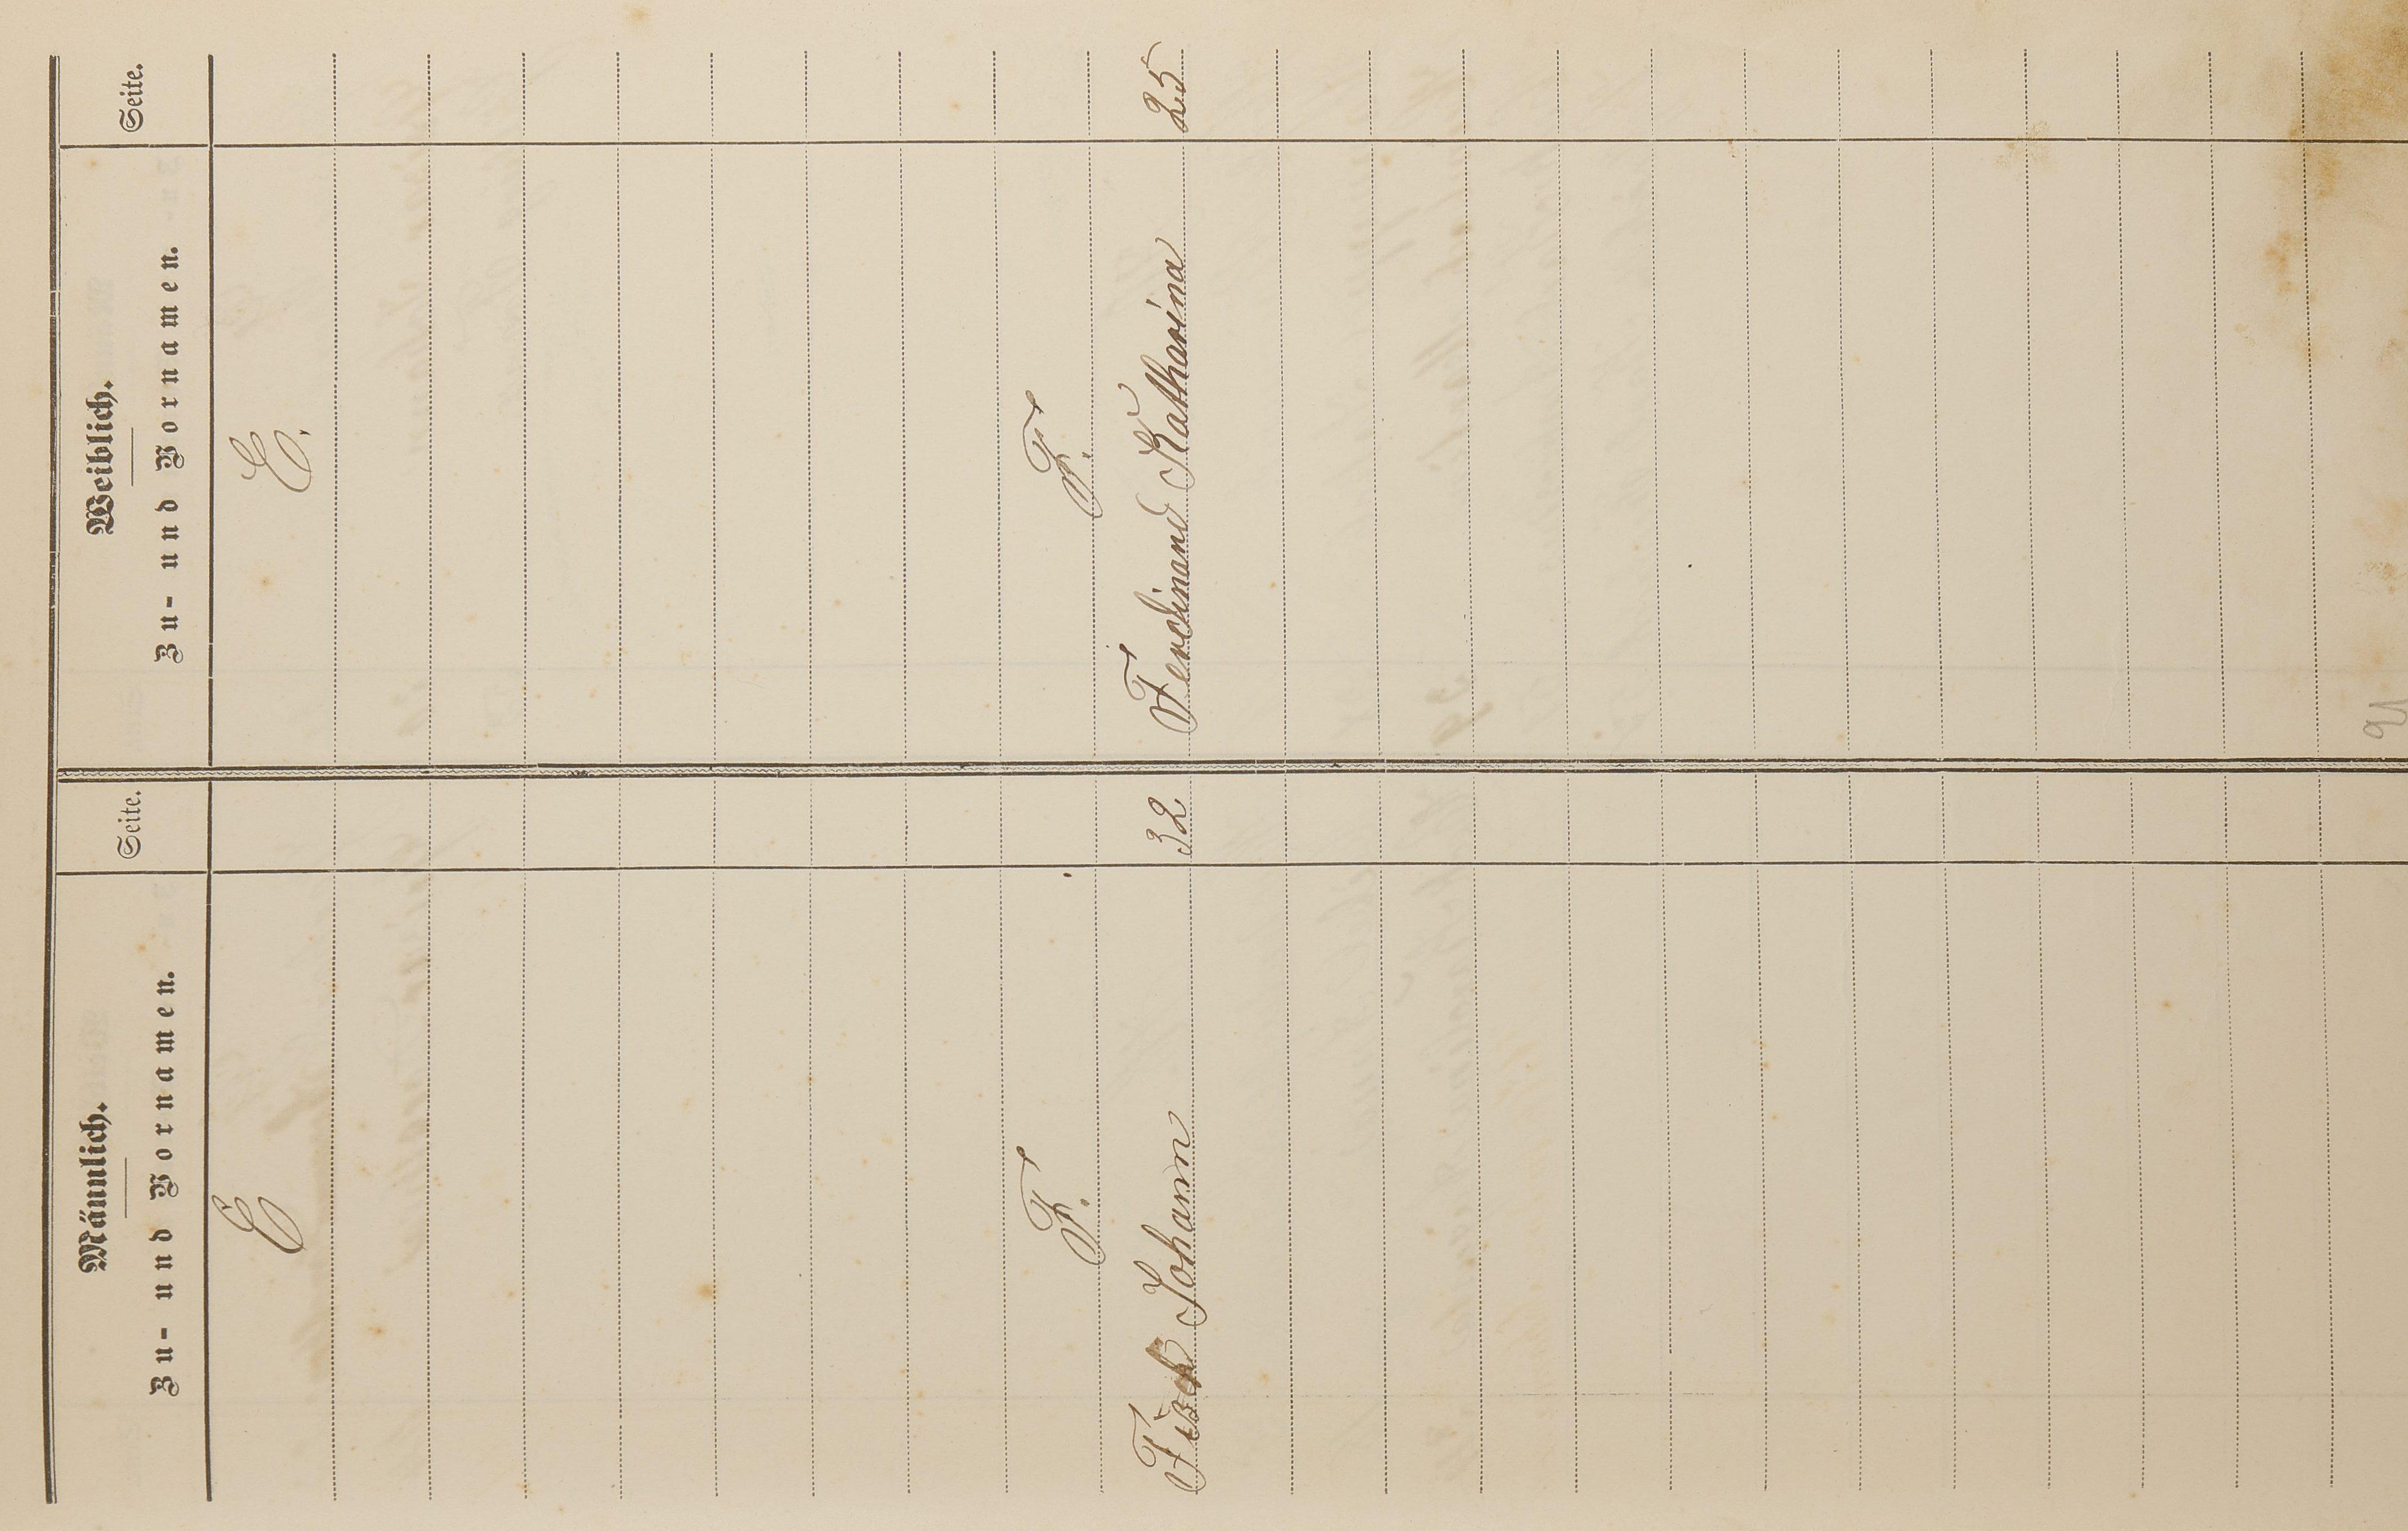 Männlich.
Zu- und Vornamen.
Seite.
Weiblich.
Zu- und Vornamen.
Seite.
E
E.
F.
F.
Johann 32
Ferdinand Katharina 25